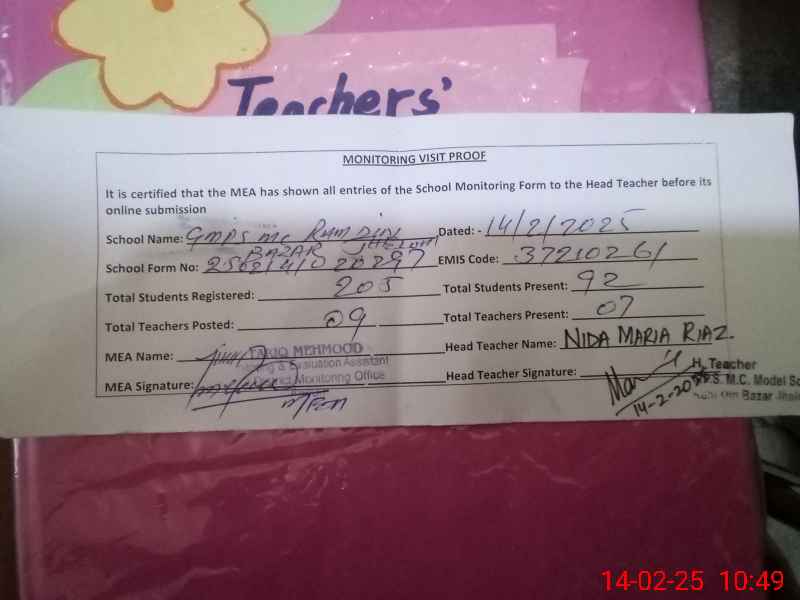 Teachers'
MONITORING VISIT PROOF
It is certified that the MEA has shown all entries of the School Monitoring Form to the Head Teacher before its
online submission
School Name: GMPS MC Rum Din Dated: - 14/2/2025
BAZAR JHELUM
School Form No: EMIS Code: 37210261
Total Students Registered: 205 Total Students Present: 92
Total Teachers Posted: 09 Total Teachers Present: 07
MEA Name: TARIQ MEHMOOD Head Teacher Name: NIDA MARIA RIAZ
& Evaluation Assistant
Monitoring Office
MEA Signature: Head Teacher Signature:
H. Teacher
M.C. Model
14-2-2025
Bazar
14-02-25 10:49